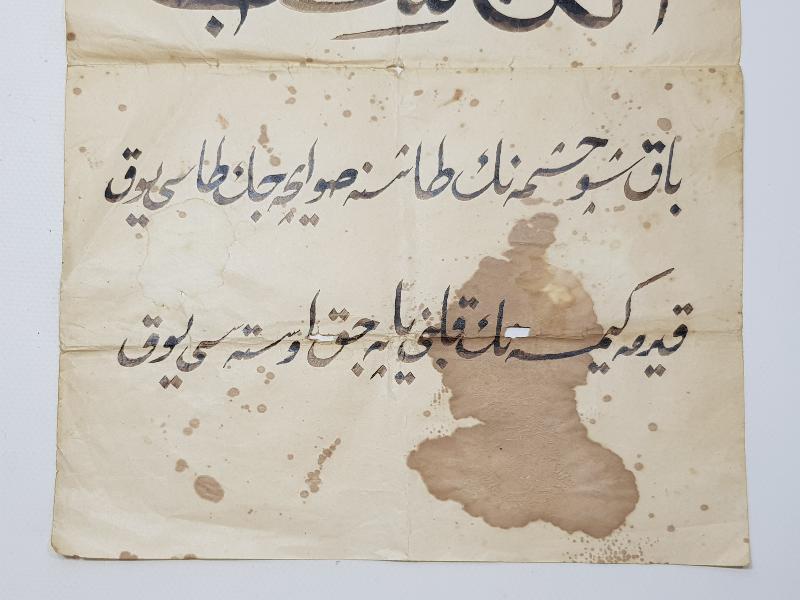 باق شو چشمه نك طاشنه صو ایچه جك طاسی یوق
قیرمه كیمسه نك قلبنی یاپه جق اوسته سی یوق